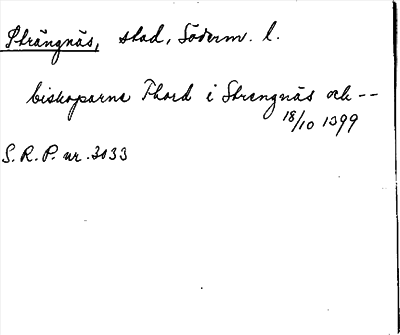 Strängnäs, stad, Söderm. l.
biskoparna Thord i Strengnäs och --
18/10 1399
S. R. P. nr. 3033